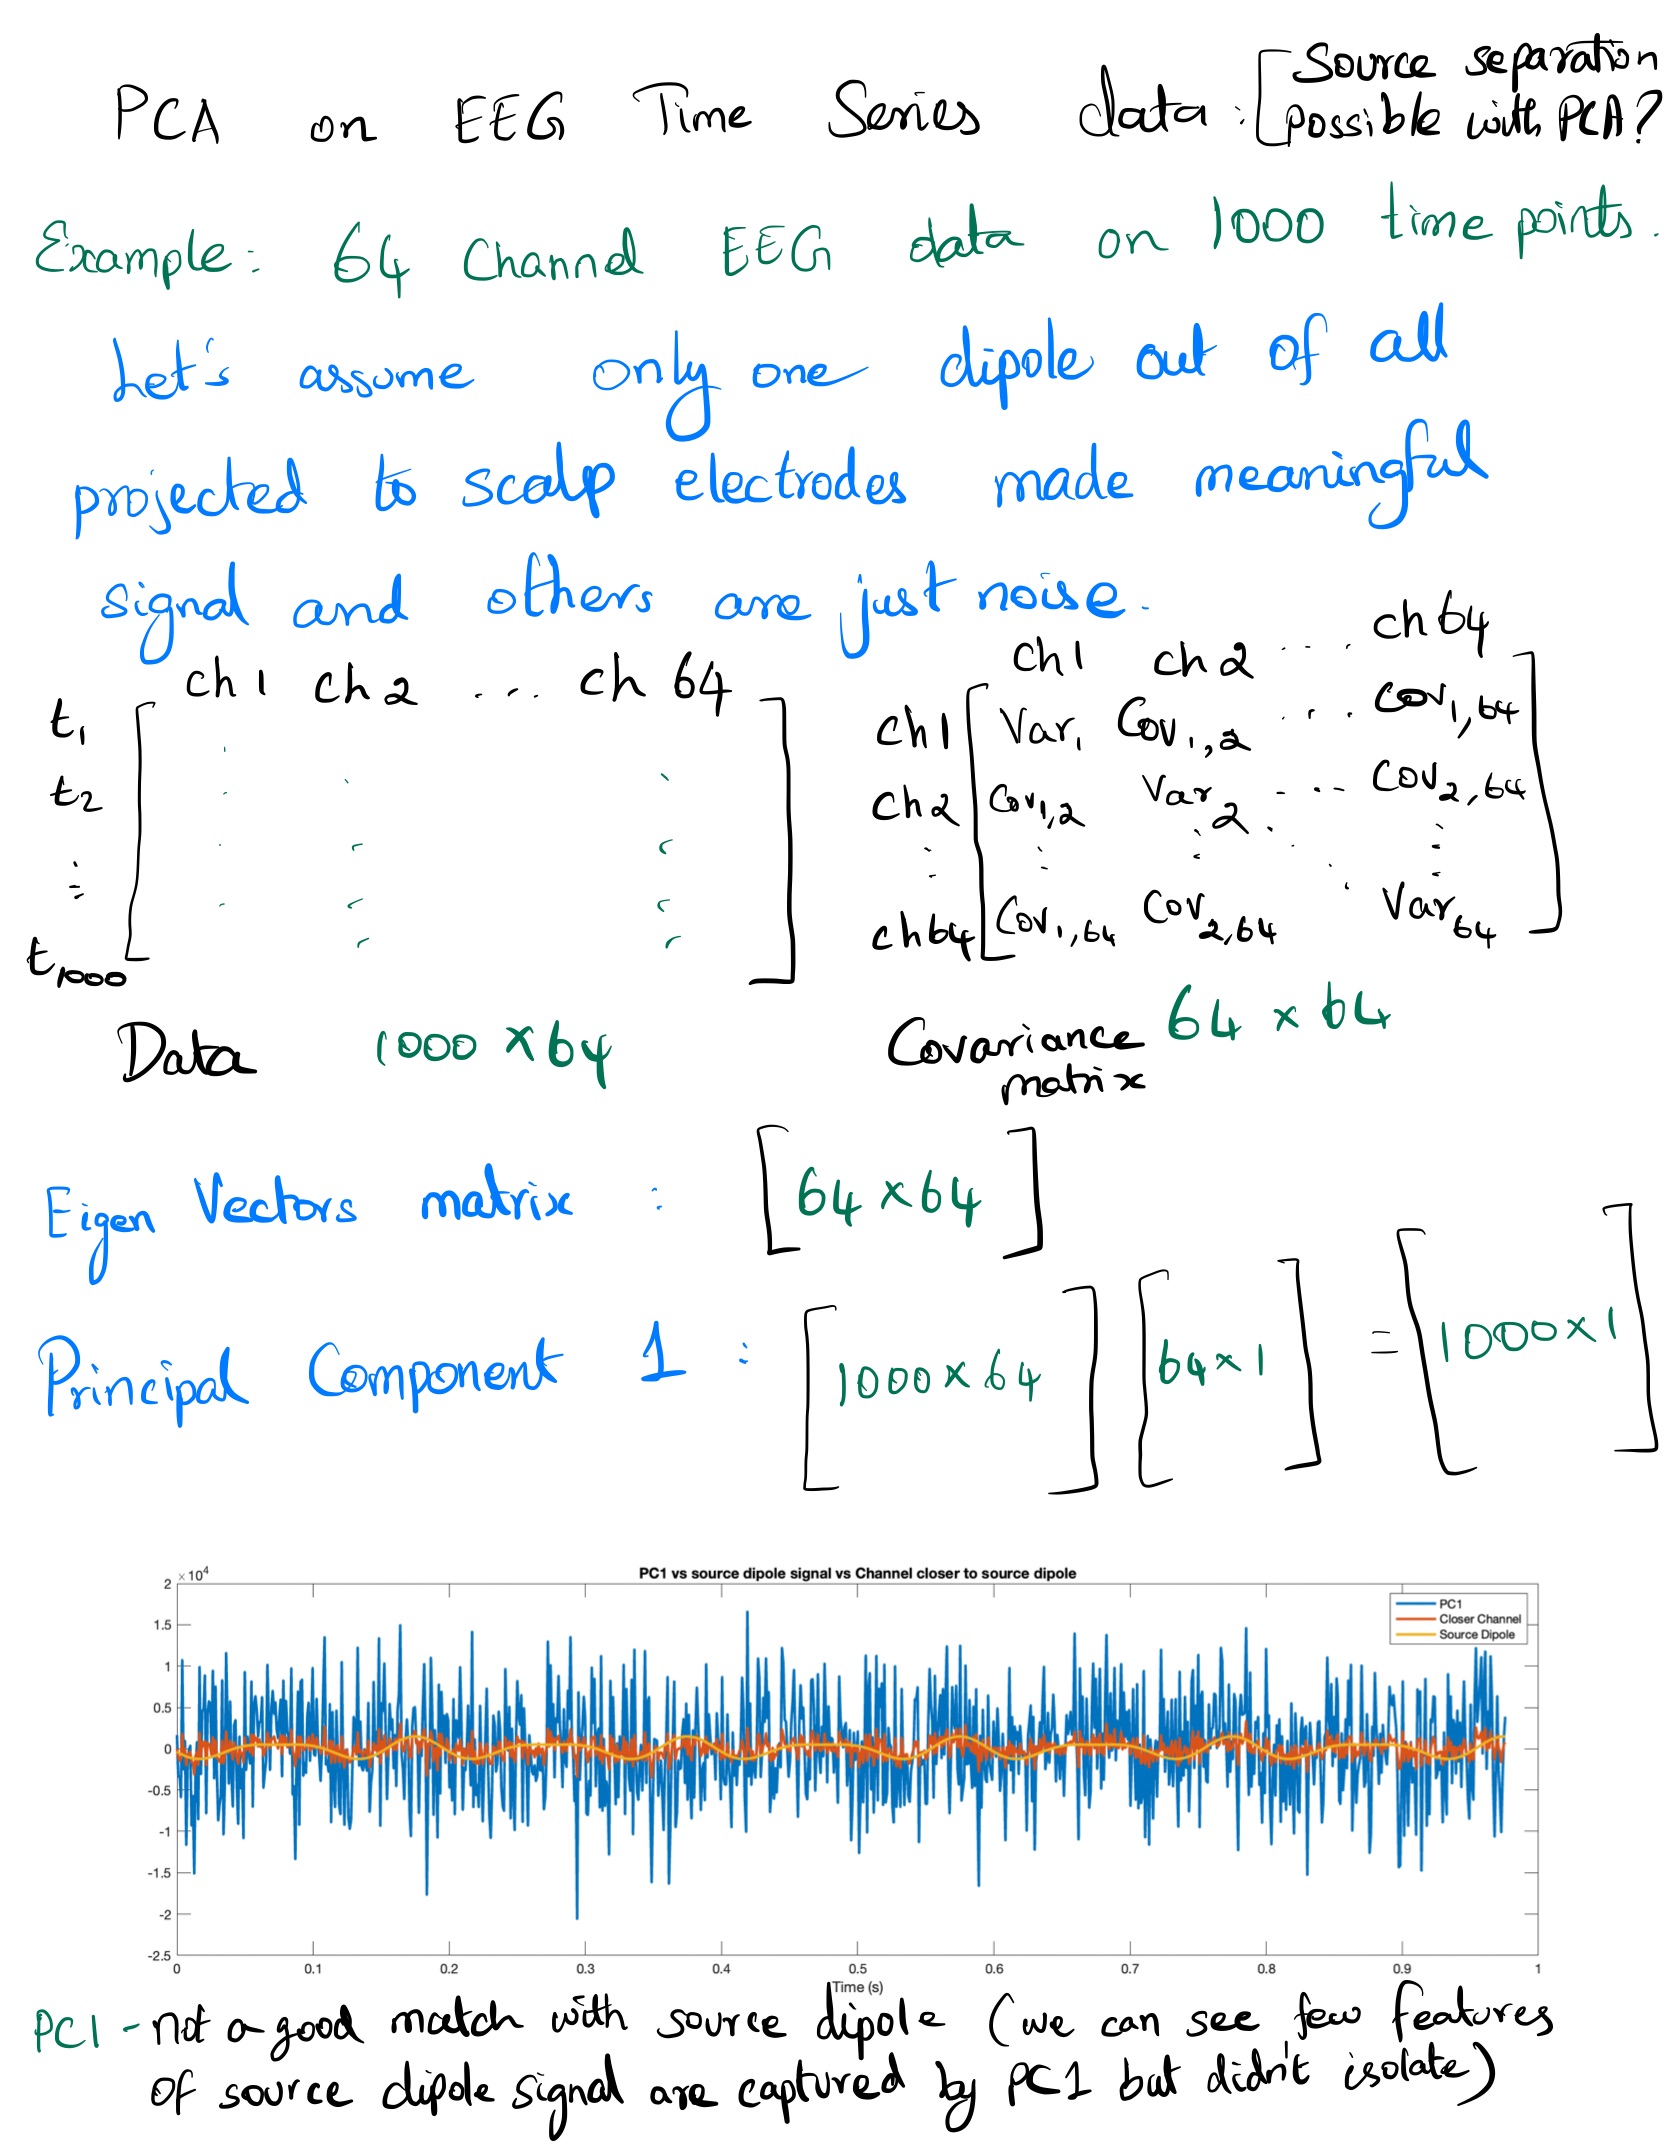 PCA on EEG Time Series data : [Source separation
possible with PCA?
Example: 64 Channel EEG data on 1000 time points.
Let's assume only one dipole out of all
projected to scalp electrodes made meaningful
signal and others are just noise.
ch 1 ch 2 ... ch 64
t1
t2
:
t1000
Data 1000 × 64
ch1 ch 2 ... ch 64
ch1 Var1 Cov1,2 ... Cov1,64
ch2 Cov1,2 Var2 ... Cov2,64
: : : : :
ch64 Cov1,64 Cov2,64 Var64
Covariance 64 × 64
matrix
Eigen Vectors matrix : [64 × 64]
Principal Component 1 : [1000 × 64] [64 × 1] = [1000 × 1]
PC1 vs source dipole signal vs Channel closer to source dipole
× 10^4
2
1.5
1
0.5
0
-0.5
-1
-1.5
-2
-2.5
PC1
Closer Channel
Source Dipole
0 0.1 0.2 0.3 0.4 0.5 0.6 0.7 0.8 0.9 1
Time (s)
PC1 - not a good match with source dipole (we can see few features
of source dipole signal are captured by PC1 but didn't isolate)